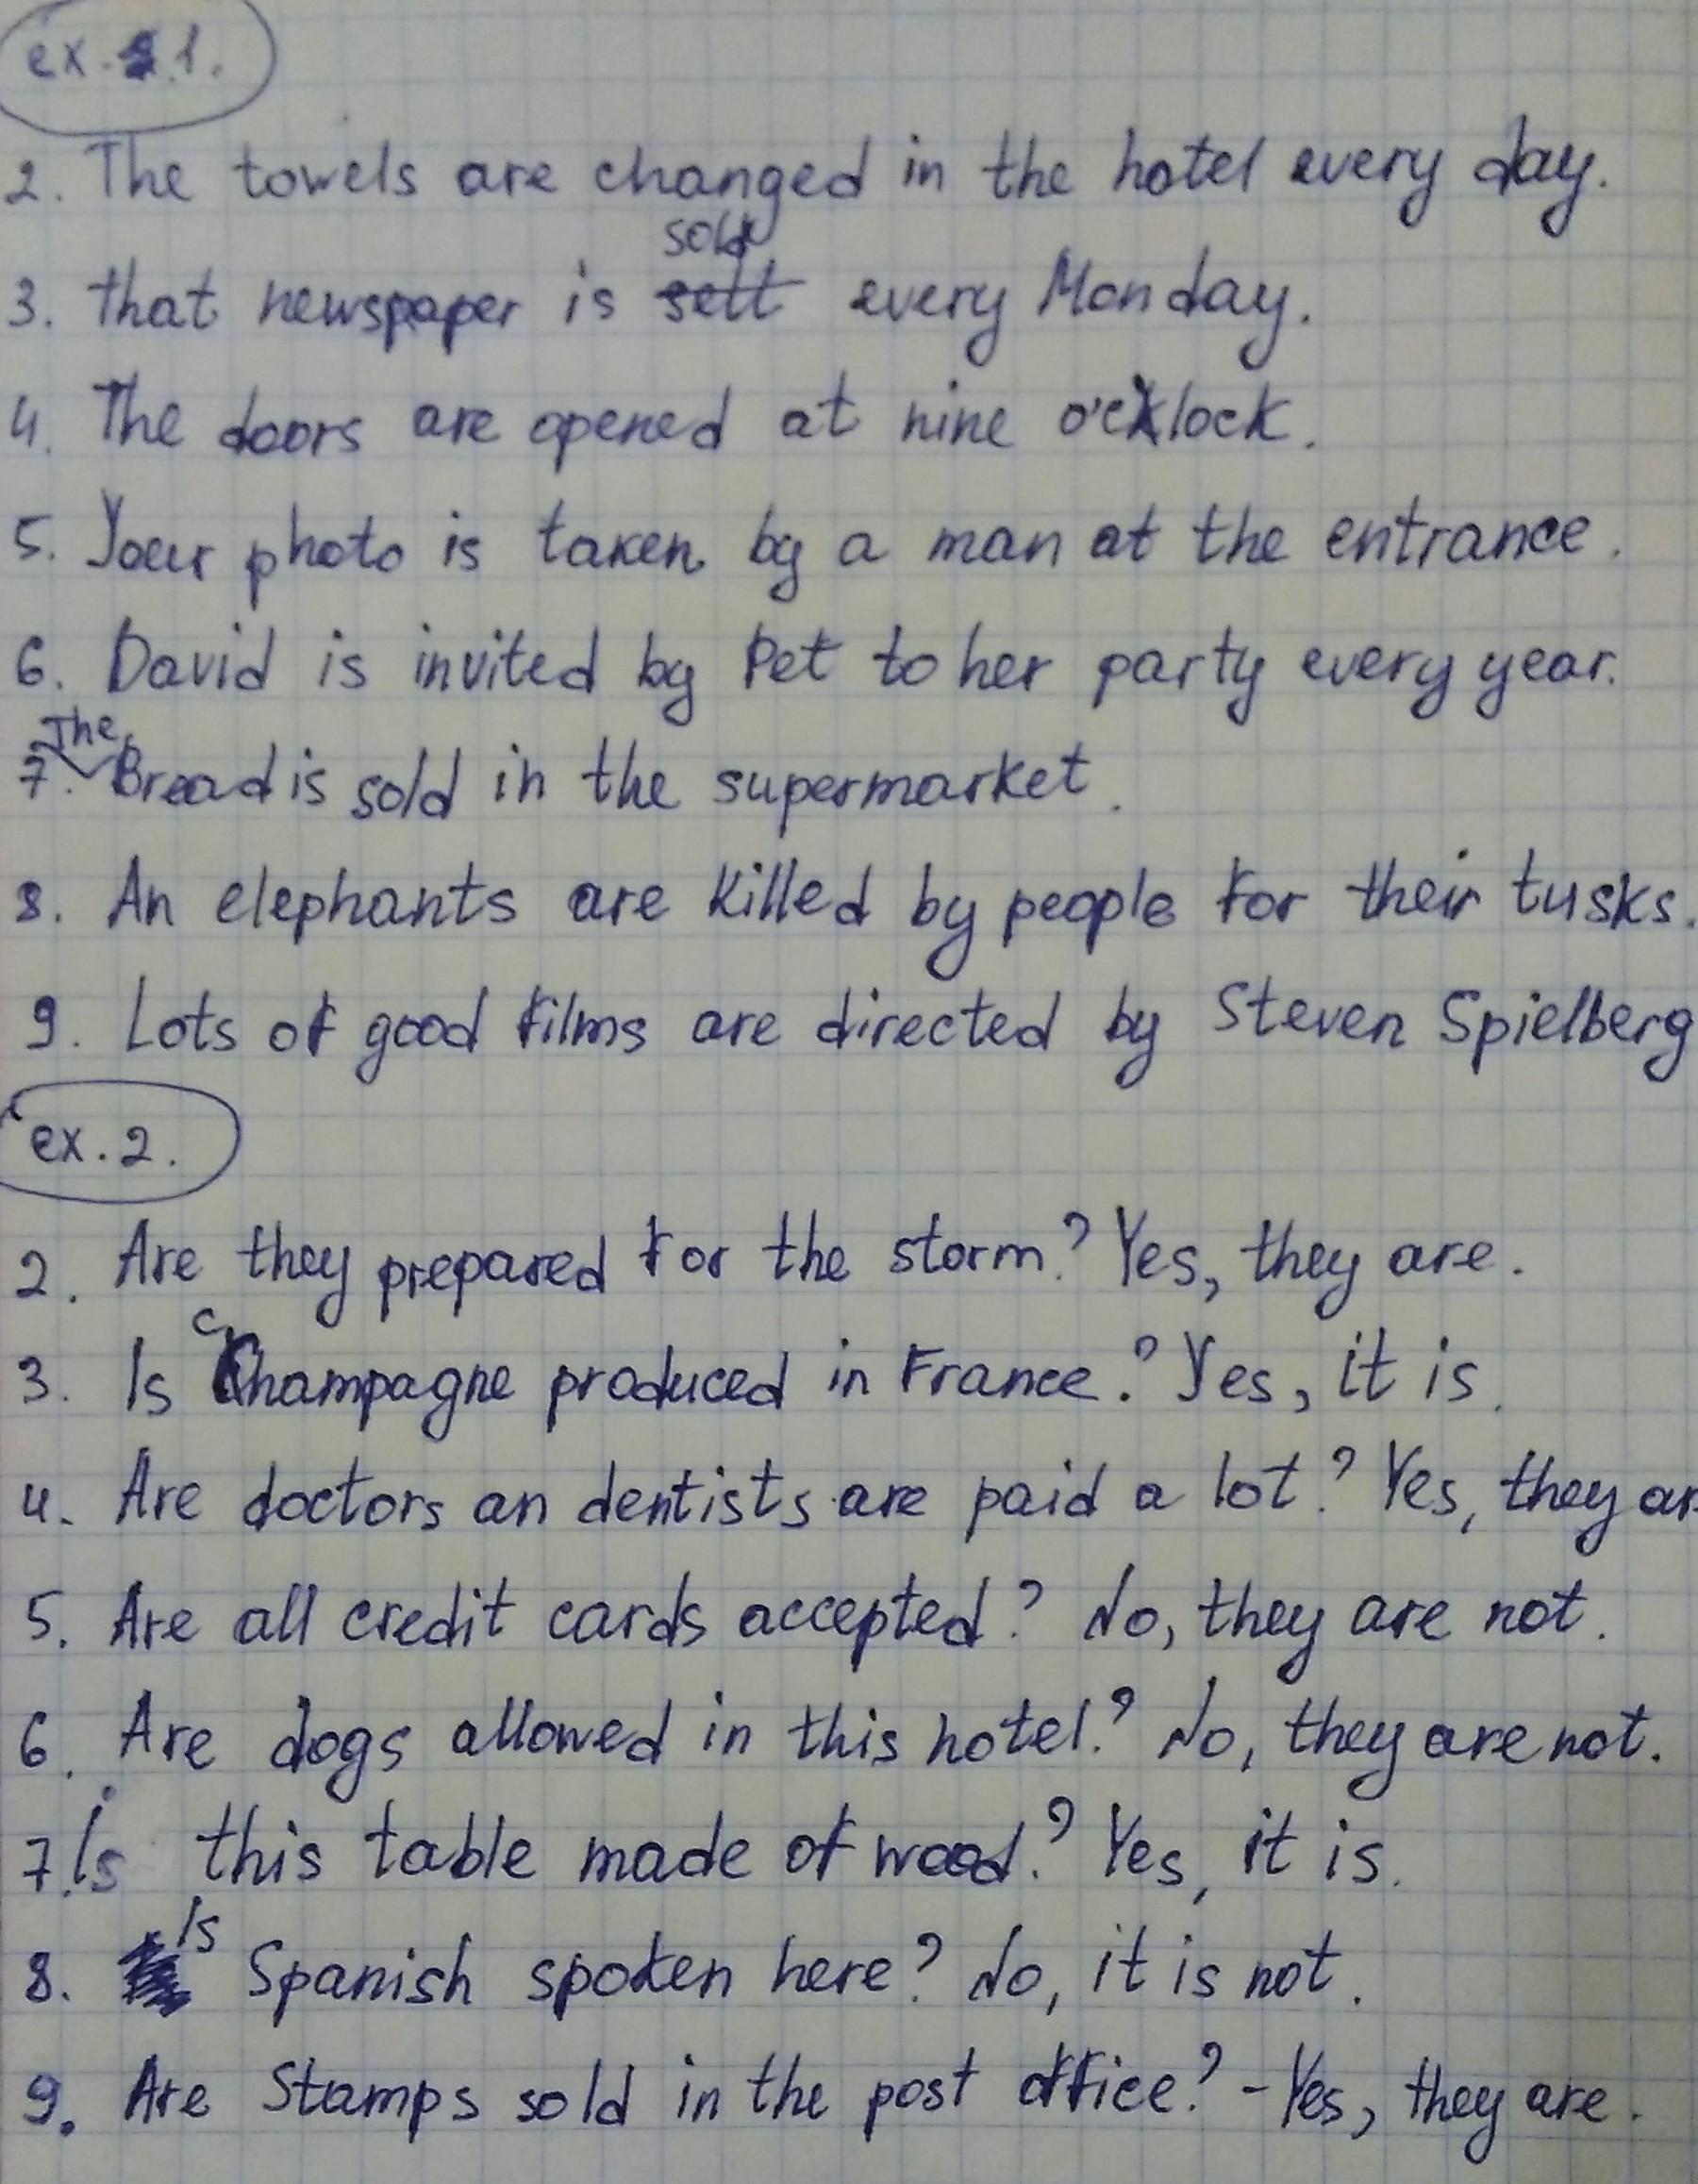 ex. 1.
2. The towels are changed in the hotel every day.
sold
3. that newspaper is sell every Monday.
4. The doors are opened at nine o'clock.
5. Your photo is taken by a man at the entrance.
6. David is invited by Pet to her party every year.
The
7. Bread is sold in the supermarket.
8. An elephants are killed by people for their tusks.
9. Lots of good films are directed by Steven Spielberg
ex. 2.
2. Are they prepared for the storm? Yes, they are.
3. Is Champagne produced in France? Yes, it is.
4. Are doctors an dentists are paid a lot? Yes, they ar
5. Are all credit cards accepted? No, they are not.
6. Are dogs allowed in this hotel? No, they are not.
7. Is this table made of wood? Yes, it is.
8. Is Spanish spoken here? No, it is not.
9. Are Stamps sold in the post office? - Yes, they are.